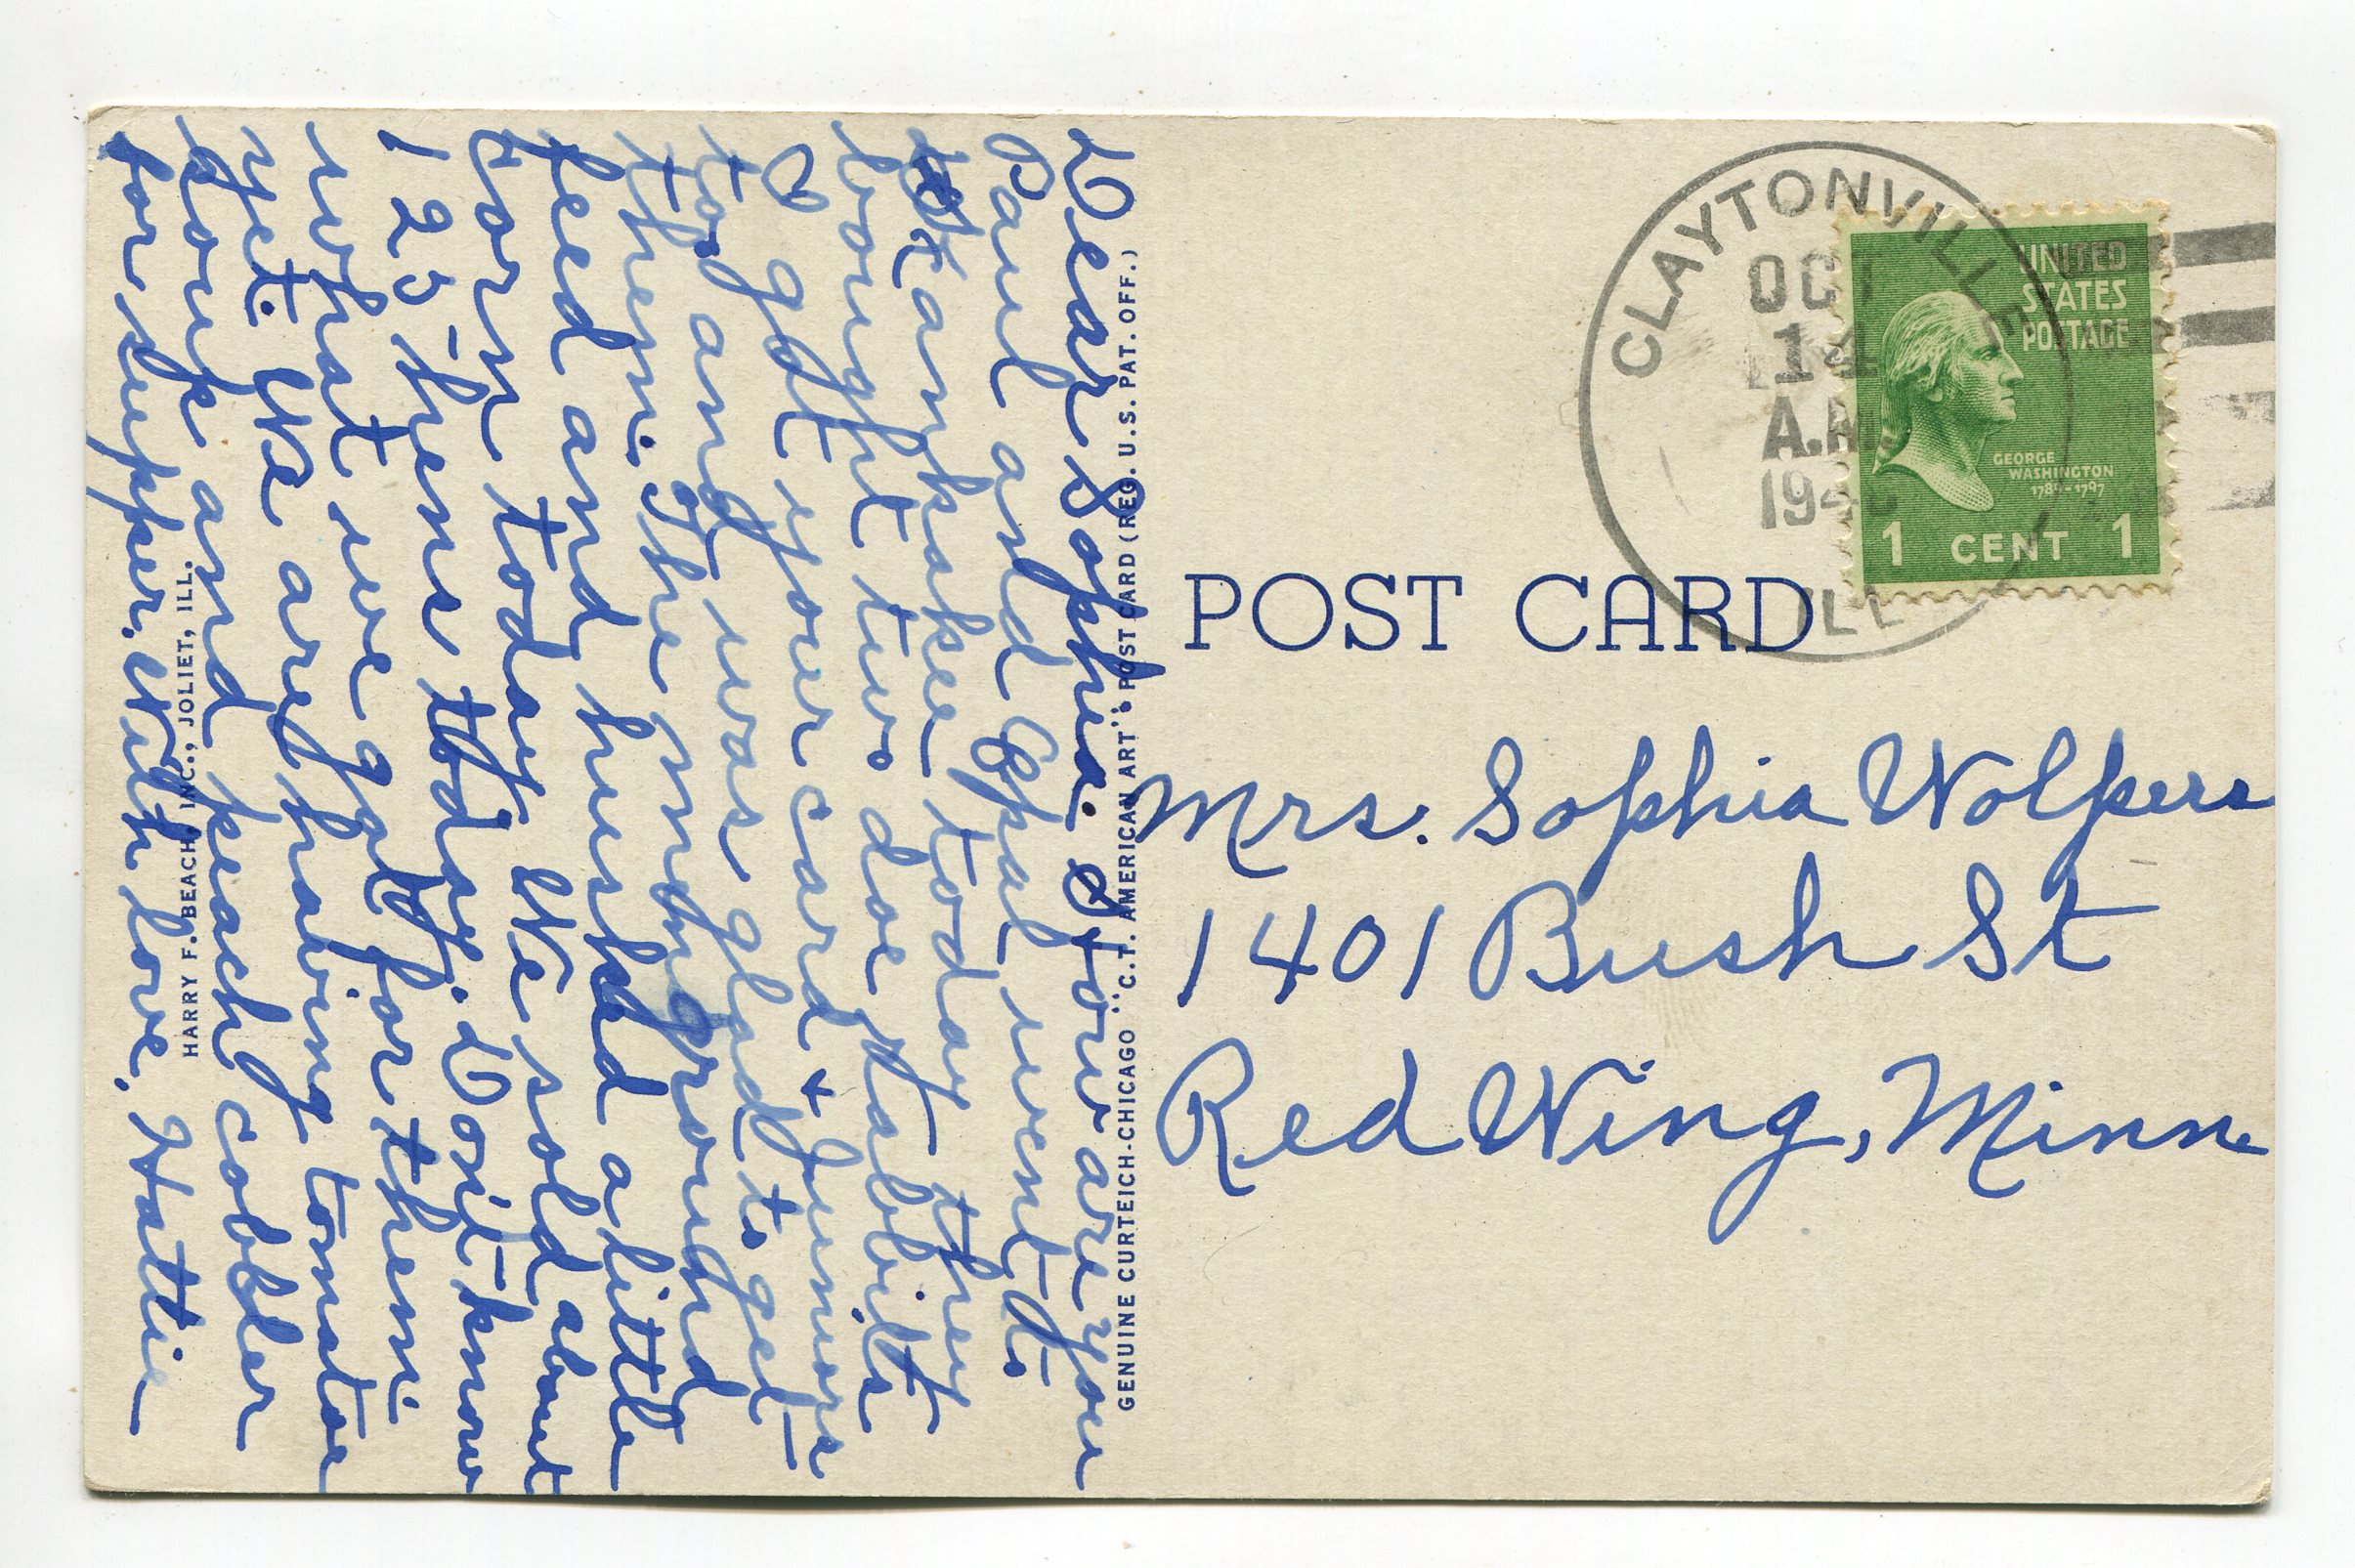 Dear Sophia. How are you
Paul and Opal went to
Kankakee today they
bought two doe rabbits
I got your card + Juniors
too and was glad to get
them. The men ground
feed and husked a little
corn today. We sold about
125 hens today. Don't know
what we get for them
yet. We are having tomatoe
soup and peach cobbler
for supper. With love, Hattie
GENUINE CURTEICH-CHICAGO "C.T. AMERICAN ART" POST CARD (REG. U.S. PAT. OFF.)
HARRY F. BEACH INC., JOLIET, ILL.
POST CARD
CLAYTONVILLE
OCT
14
A.M.
ILL
UNITED
STATES
POSTAGE
GEORGE
WASHINGTON
1789-1797
1 CENT 1
Mrs. Sophia Wolpers
1401 Bush St
Red Wing, Minn